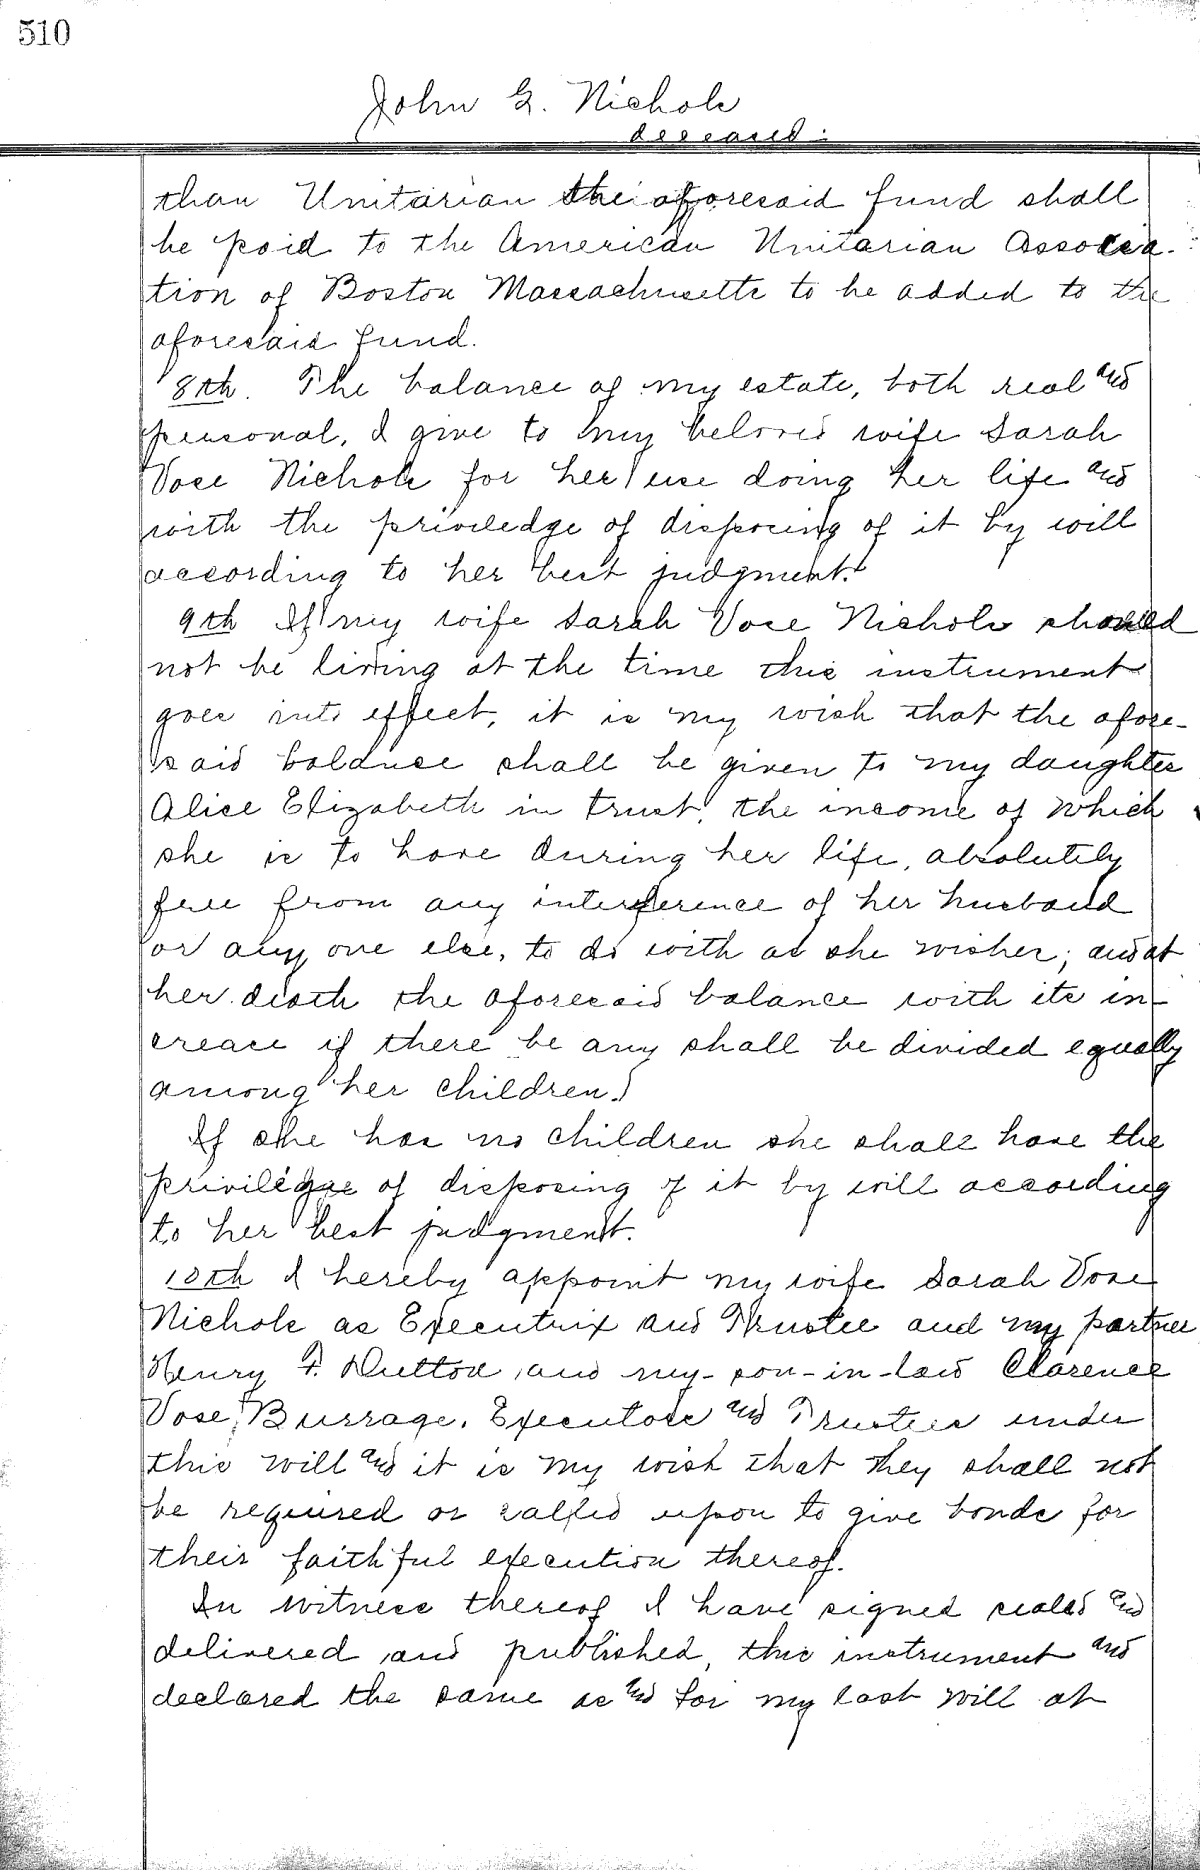 510
John G. Nichols
deceased.
than Unitarian the aforesaid fund shall
be paid to the American Unitarian Associa-
tion of Boston Massachusetts to be added to the
aforesaid fund.
8th. The balance of my estate, both real and
personal, I give to my beloved wife Sarah
Vose Nichols for her use doing her life and
with the priviledge of disposing of it by will
according to her best judgment.
9th If my wife Sarah Vose Nichols should
not be living at the time this instrument
goes into effect, it is my wish that the afore-
said balance shall be given to my daughter
Alice Elizabeth in trust, the income of which
she is to have during her life, absolutely
free from any interference of her husband
or any one else, to do with as she wishes; and at
her death the aforesaid balance with its in-
crease if there be any shall be divided equally
among her children.
If she has no children she shall have the
privilege of disposing of it by will according
to her best judgment.
10th I hereby appoint my wife Sarah Vose
Nichols as Executrix and Trustee and my partner
Henry F. Dutton, and my-son-in-law Clarence
Vose Burrage, Executors and Trustees under
this will and it is my wish that they shall not
be required or called upon to give bonds for
their faithful execution thereof.
In witness thereof I have signed sealed and
delivered, and published, this instrument and
declared the same as and for my last will at